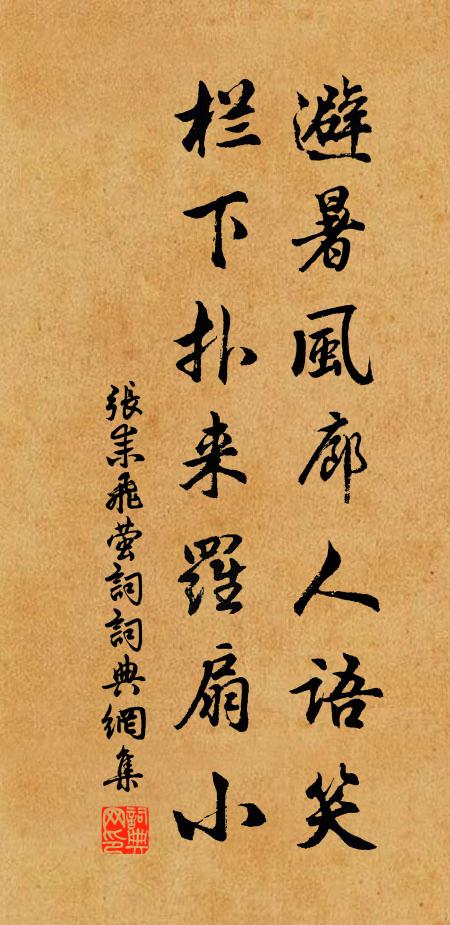 避暑風廊人語笑
栏下扑来羅扇小
張耒飛萤詞詞典網集
詞典网印